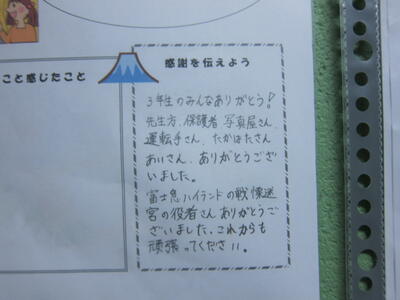 こと感じたこと
感謝を伝えよう
3年生のみんなありがとう!
先生方、保護者、写真屋さん、
運転手さん、たかはたさん
あいさん、ありがとうござ
いました。
富士急ハイランドの戦慄迷
宮の役者さんありがとうご
ざいました。これからも
頑張ってください。